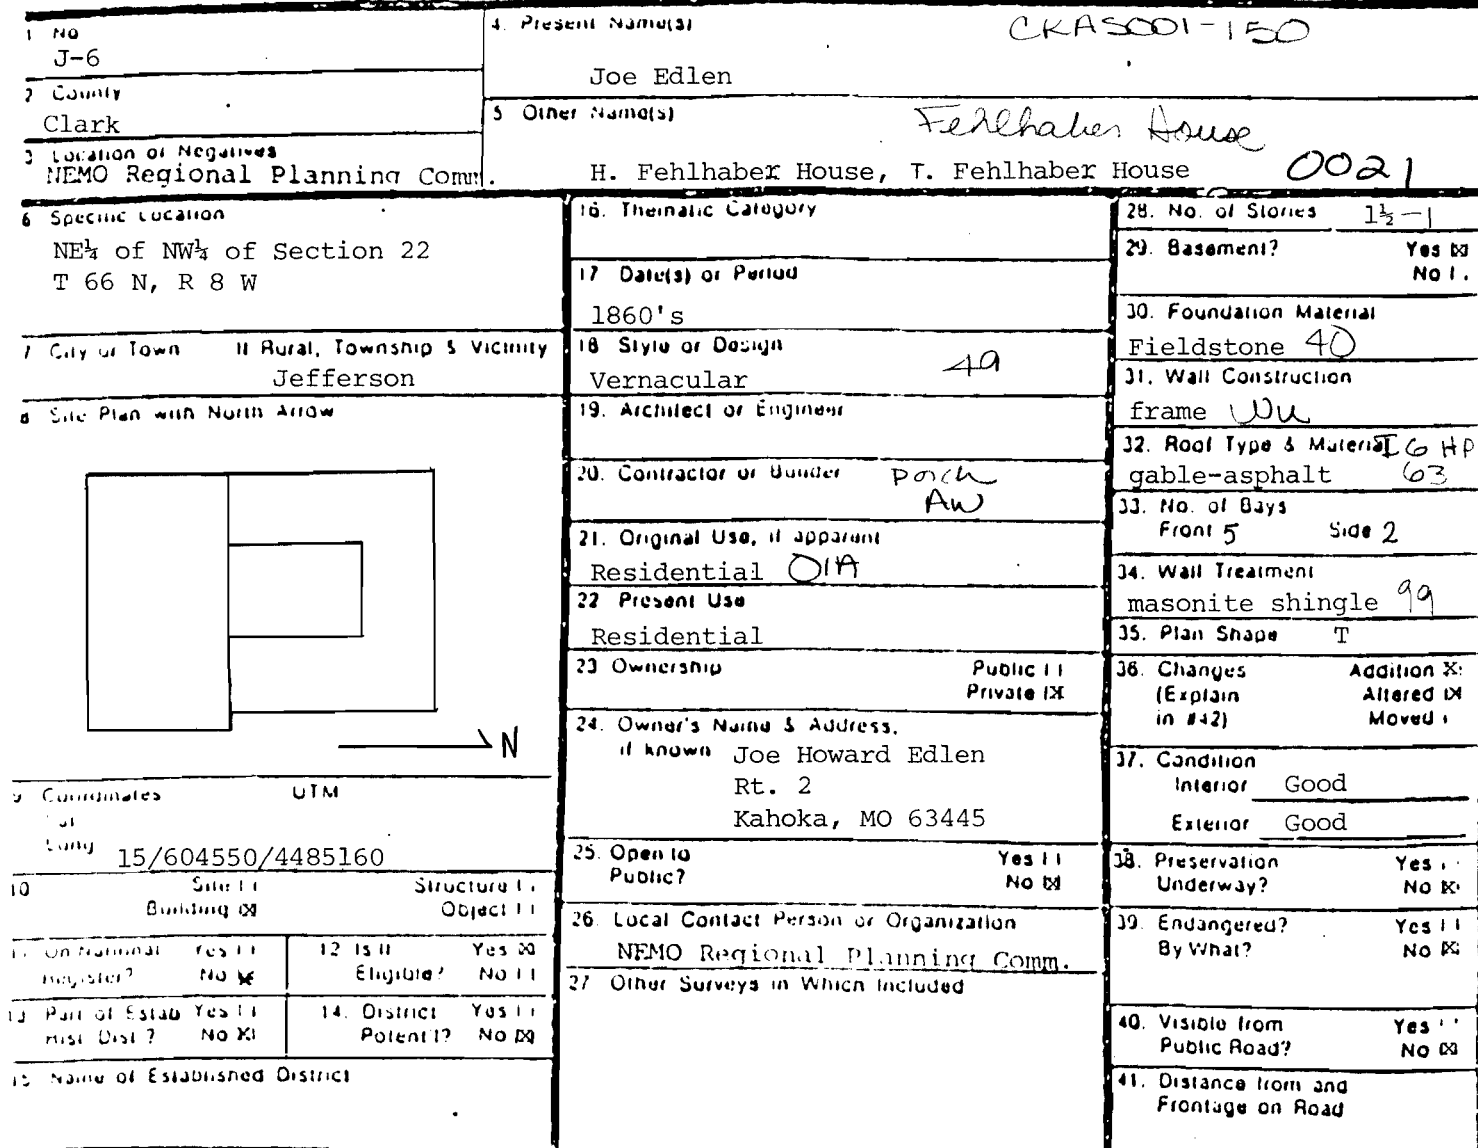 1 No
J-6
2 County
Clark
3 Location of Negatives
NEMO Regional Planning Comm.
4. Present Name(s)
CKAS001-150
Joe Edlen
5 Other Name(s)
Fehlhaber House
H. Fehlhaber House, T. Fehlhaber House 0021
6 Specific Location
NE¼ of NW¼ of Section 22
T 66 N, R 8 W
7 City or Town If Rural, Township & Vicinity
Jefferson
8 Site Plan with North Arrow
N
9 Coordinates UTM
Lat
Long
15/604550/4485160
10 Site [ ] Structure [ ]
Building [X] Object [ ]
11 On National Yes [ ]
Register? No [X]
12 Is It Yes [X]
Eligible? No [ ]
13 Part of Estab Yes [ ]
Hist Dist? No [X]
14. District Yes [ ]
Potent'l? No [X]
15 Name of Established District
16. Thematic Category
17 Date(s) or Period
1860's
18 Style or Design
Vernacular 49
19. Architect or Engineer
20. Contractor or Builder porch
AW
21. Original Use, if apparent
Residential 01A
22 Present Use
Residential
23 Ownership Public [ ]
Private [X]
24. Owner's Name & Address,
if known Joe Howard Edlen
Rt. 2
Kahoka, MO 63445
25. Open to Yes [ ]
Public? No [X]
26. Local Contact Person or Organization
NEMO Regional Planning Comm.
27 Other Surveys in Which Included
28. No. of Stories 1½-1
29. Basement? Yes [X]
No [ ]
30. Foundation Material
Fieldstone 40
31. Wall Construction
frame WU
32. Roof Type & Material IG HP
gable-asphalt 63
33. No. of Bays
Front 5 Side 2
34. Wall Treatment
masonite shingle 99
35. Plan Shape T
36. Changes Addition [X]
(Explain Altered [X]
in #42) Moved [ ]
37. Condition
Interior Good
Exterior Good
38. Preservation Yes [ ]
Underway? No [X]
39. Endangered? Yes [ ]
By What? No [X]
40. Visible from Yes [ ]
Public Road? No [X]
41. Distance from and
Frontage on Road